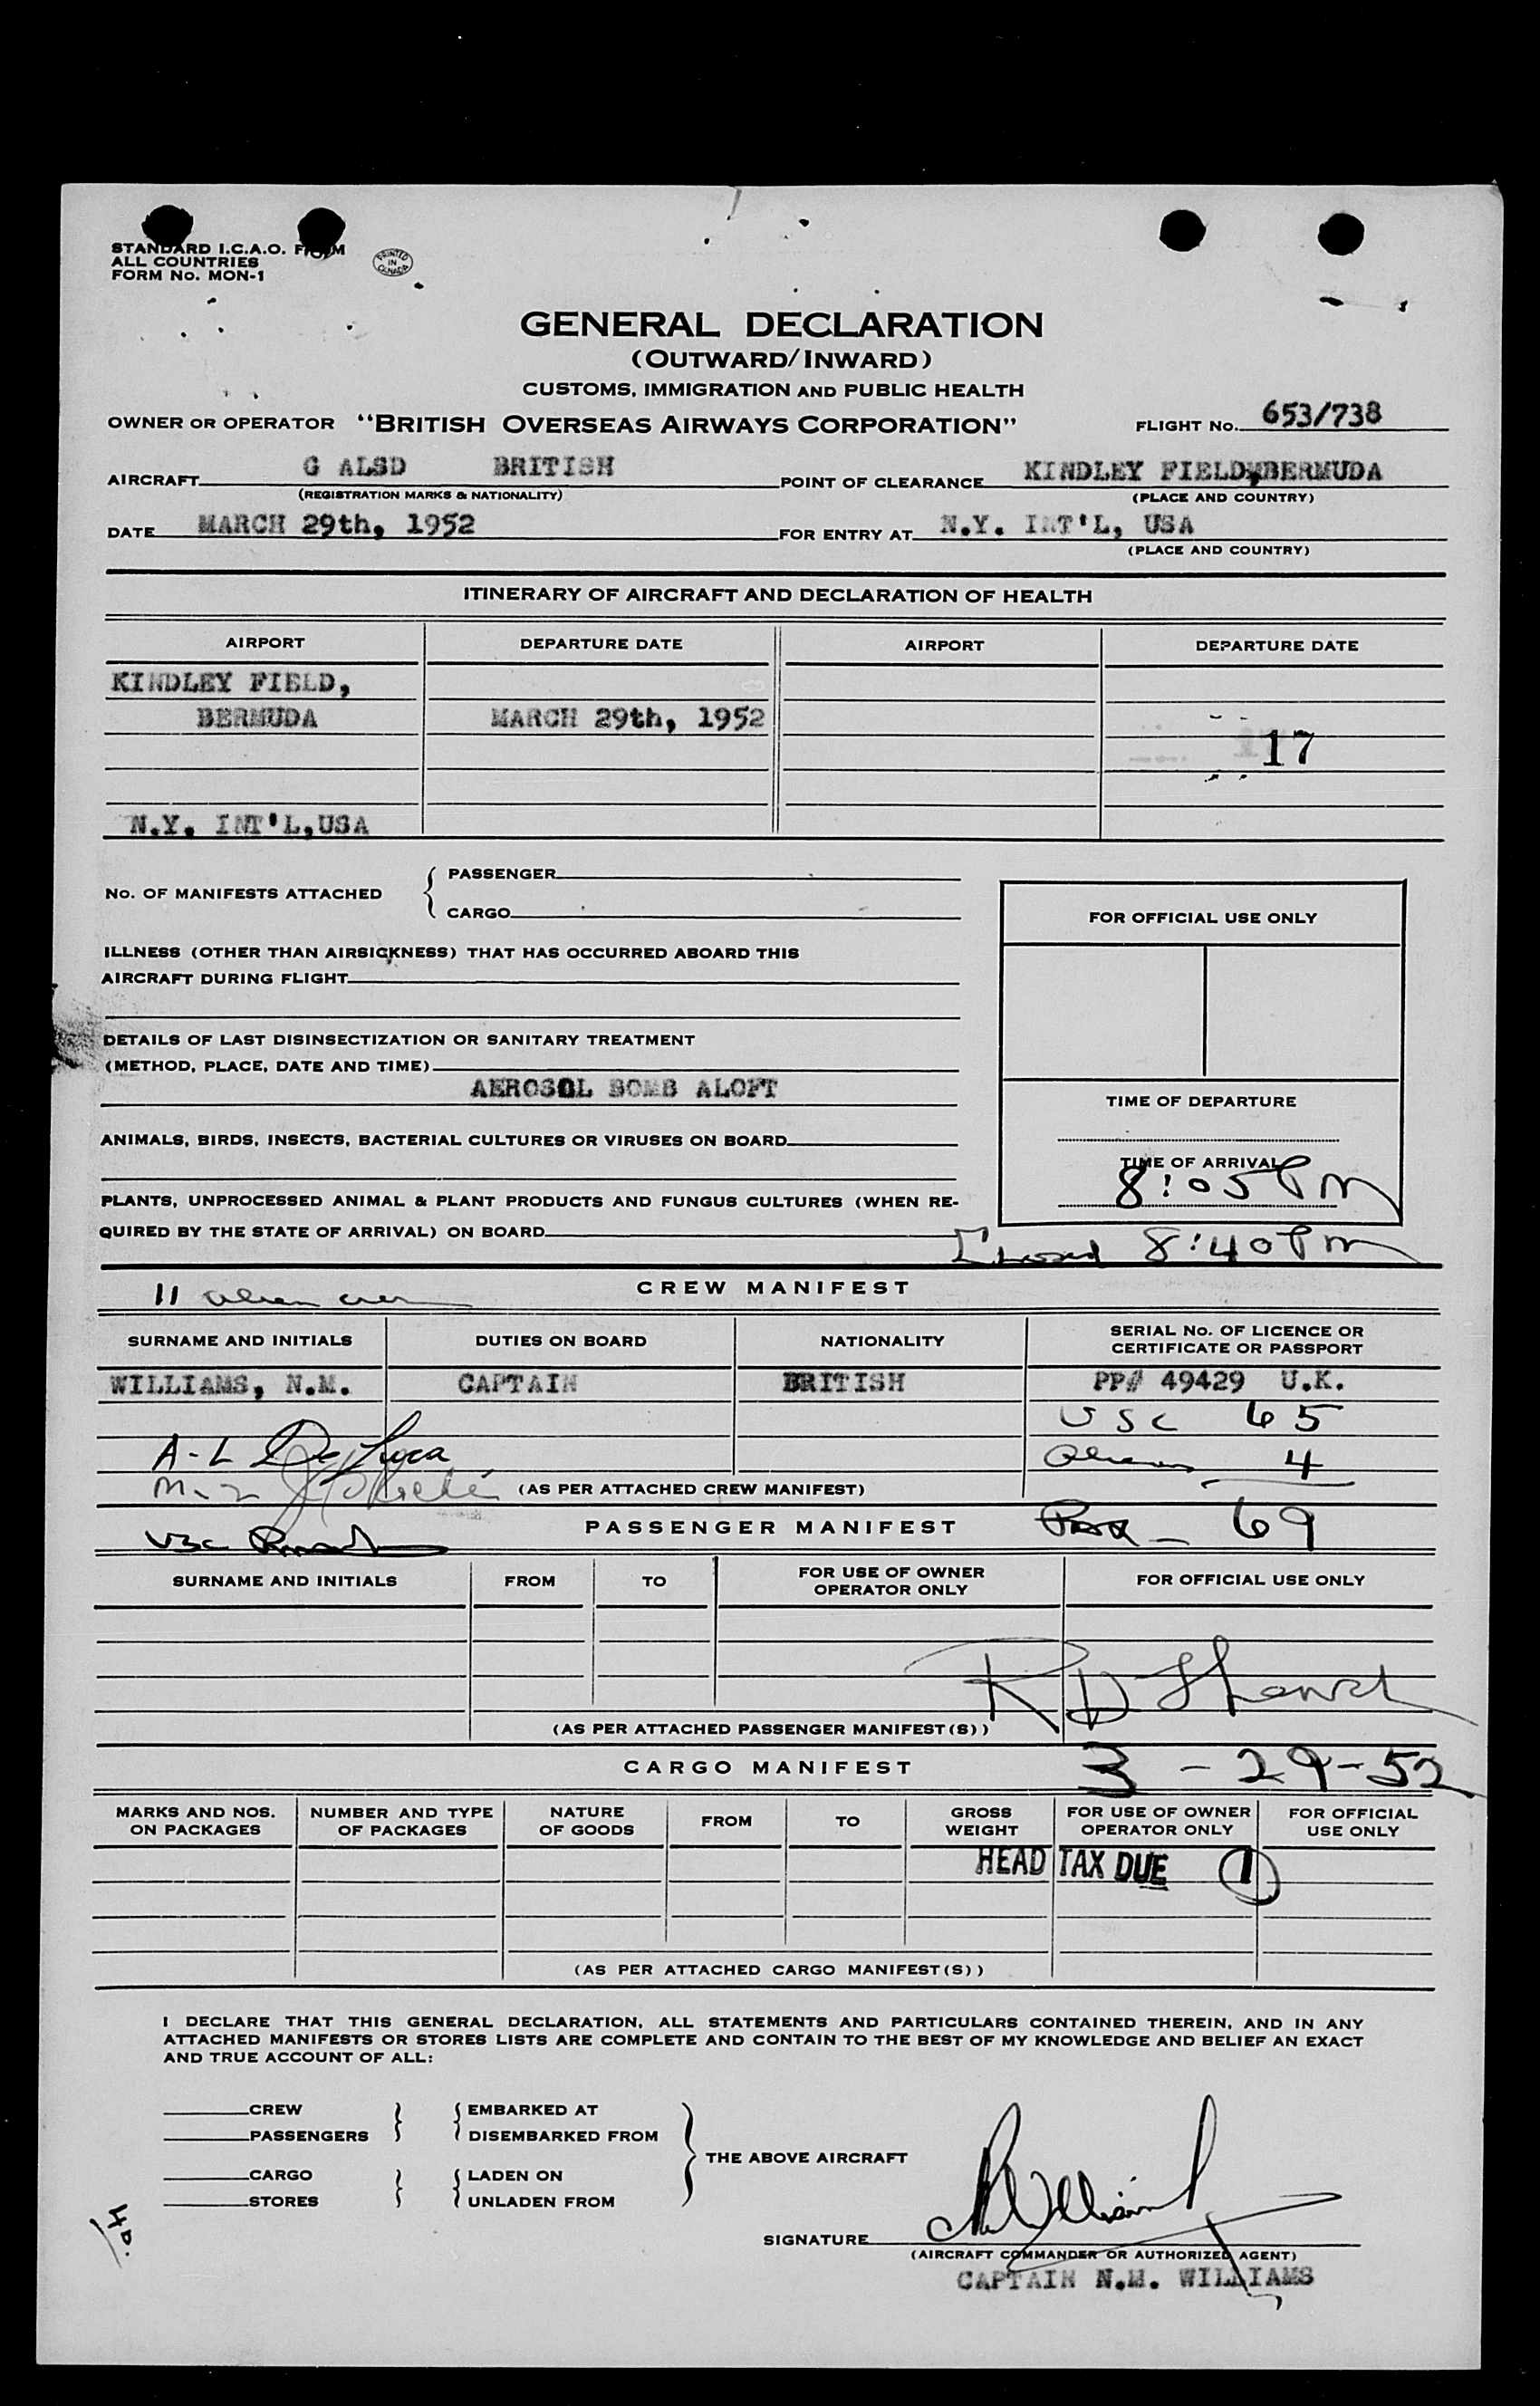 STANDARD I.C.A.O. FORM
ALL COUNTRIES
FORM No. MON-1
PRINTED IN CANADA
GENERAL DECLARATION
(OUTWARD/INWARD)
CUSTOMS, IMMIGRATION AND PUBLIC HEALTH
OWNER OR OPERATOR "BRITISH OVERSEAS AIRWAYS CORPORATION" FLIGHT No. 653/738
AIRCRAFT G ALSD BRITISH POINT OF CLEARANCE KINDLEY FIELD, BERMUDA
(REGISTRATION MARKS & NATIONALITY) (PLACE AND COUNTRY)
DATE MARCH 29th, 1952 FOR ENTRY AT N.Y. INT'L, USA
(PLACE AND COUNTRY)
ITINERARY OF AIRCRAFT AND DECLARATION OF HEALTH
AIRPORT DEPARTURE DATE AIRPORT DEPARTURE DATE
KINDLEY FIELD,
BERMUDA MARCH 29th, 1952
17
N.Y. INT'L,USA
No. OF MANIFESTS ATTACHED { PASSENGER
CARGO
FOR OFFICIAL USE ONLY
ILLNESS (OTHER THAN AIRSICKNESS) THAT HAS OCCURRED ABOARD THIS
AIRCRAFT DURING FLIGHT
DETAILS OF LAST DISINSECTIZATION OR SANITARY TREATMENT
(METHOD, PLACE, DATE AND TIME)
AEROSOL BOMB ALOFT
TIME OF DEPARTURE
ANIMALS, BIRDS, INSECTS, BACTERIAL CULTURES OR VIRUSES ON BOARD
TIME OF ARRIVAL
8:05 PM
PLANTS, UNPROCESSED ANIMAL & PLANT PRODUCTS AND FUNGUS CULTURES (WHEN RE-
QUIRED BY THE STATE OF ARRIVAL) ON BOARD
8:40 PM
11 alien crew CREW MANIFEST
SURNAME AND INITIALS DUTIES ON BOARD NATIONALITY SERIAL No. OF LICENCE OR
CERTIFICATE OR PASSPORT
WILLIAMS, N.M. CAPTAIN BRITISH PP# 49429 U.K.
USC 65
A-L De Luca Aliens 4
(AS PER ATTACHED CREW MANIFEST)
PASSENGER MANIFEST 69
SURNAME AND INITIALS FROM TO FOR USE OF OWNER
OPERATOR ONLY FOR OFFICIAL USE ONLY
(AS PER ATTACHED PASSENGER MANIFEST(S))
CARGO MANIFEST 3-29-52
MARKS AND NOS.
ON PACKAGES NUMBER AND TYPE
OF PACKAGES NATURE
OF GOODS FROM TO GROSS
WEIGHT FOR USE OF OWNER
OPERATOR ONLY FOR OFFICIAL
USE ONLY
HEAD TAX DUE 1
(AS PER ATTACHED CARGO MANIFEST(S))
I DECLARE THAT THIS GENERAL DECLARATION, ALL STATEMENTS AND PARTICULARS CONTAINED THEREIN, AND IN ANY
ATTACHED MANIFESTS OR STORES LISTS ARE COMPLETE AND CONTAIN TO THE BEST OF MY KNOWLEDGE AND BELIEF AN EXACT
AND TRUE ACCOUNT OF ALL:
CREW EMBARKED AT
PASSENGERS DISEMBARKED FROM
THE ABOVE AIRCRAFT
CARGO LADEN ON
STORES UNLADEN FROM
SIGNATURE
(AIRCRAFT COMMANDER OR AUTHORIZED AGENT)
CAPTAIN N.M. WILLIAMS